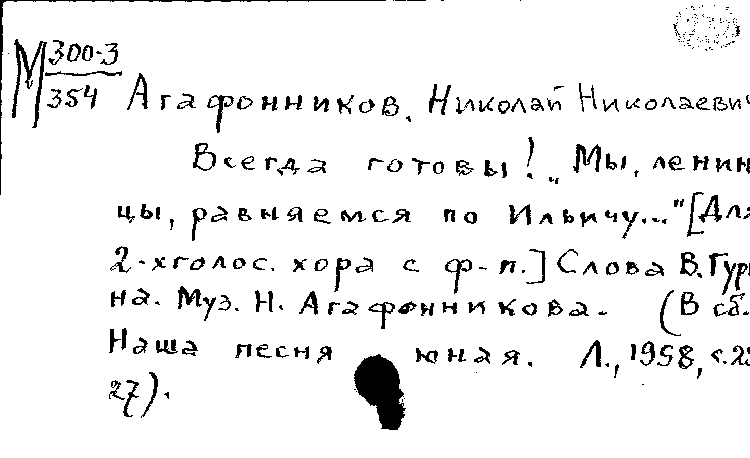 М 300-3
354
Агафонников, Николай Николаевич
Всегда готовы! „Мы, ленин
цы, равняемся по Ильичу..." [Для
2-хголос. хора с ф-п.] Слова В. Гури
на. Муз. Н. Агафонникова. (В сб.
Наша песня юная. Л., 1958, с.
27).